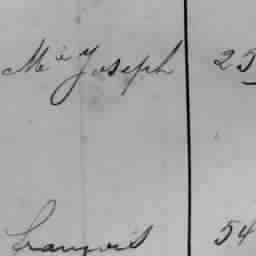 Mie Joseph 25
François 54